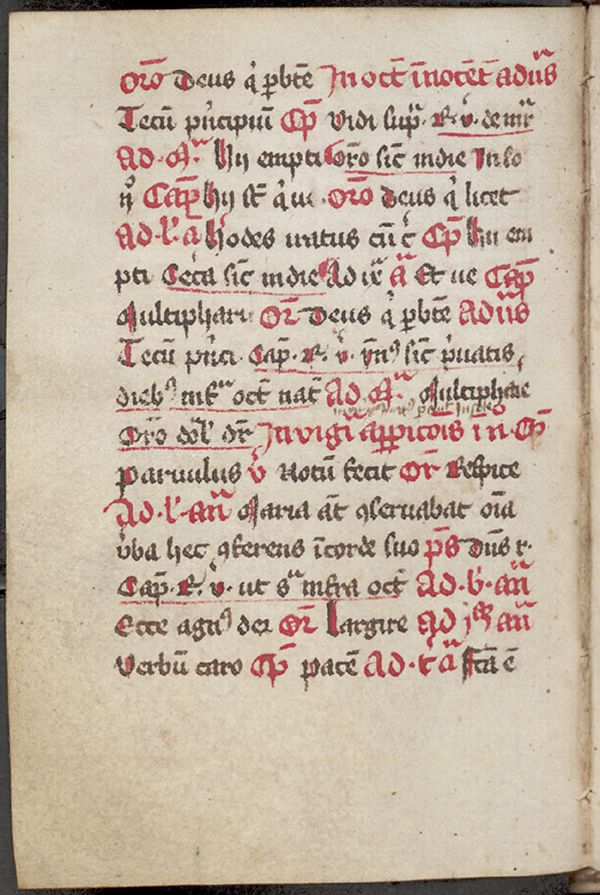 Oro Deus q̇ p̱bte In oct̄ īnocēt̄ ad ūs
Tecū pncipiū Cp̄ Vidi sup̄ R. v̇ de mr̄
Ad. M. hii empti Oro sic̄ in die In so
Cap̄ hii st̄ q̇ Oro Deus q̇ licet
Ad. l. a Hodes iratus cū Cp̄ hii em
pti Cet̄a sic̄ in die Ad ix ā Et ve Cap̄
Multiphari Or̄ Deus q̇ p̱bte Ad ūs
Tecū pnci. Cap̄. R. v̇. yn sic̄ p̱uatis
dieb infra oct̄ nat̄ Ad. M. Multipharie
Oro dēl dr̄ In vigi appicois in Cp̄
Paruulus v̇ Notū fecit Or̄ Respice
Ad. l. an̄ Maria āt ꝯseruabat oīa
v̇ba hec ꝯferens ī corde suo p̄s Dn̄s r.
Cap̄. R. v̇. ut sa infra oct̄ Ad. b. an̄
Ecce agn dei Or̄ Largire ad an̄
Verbū caro Cp̄ pacē Ad. t ā sc̄a ē